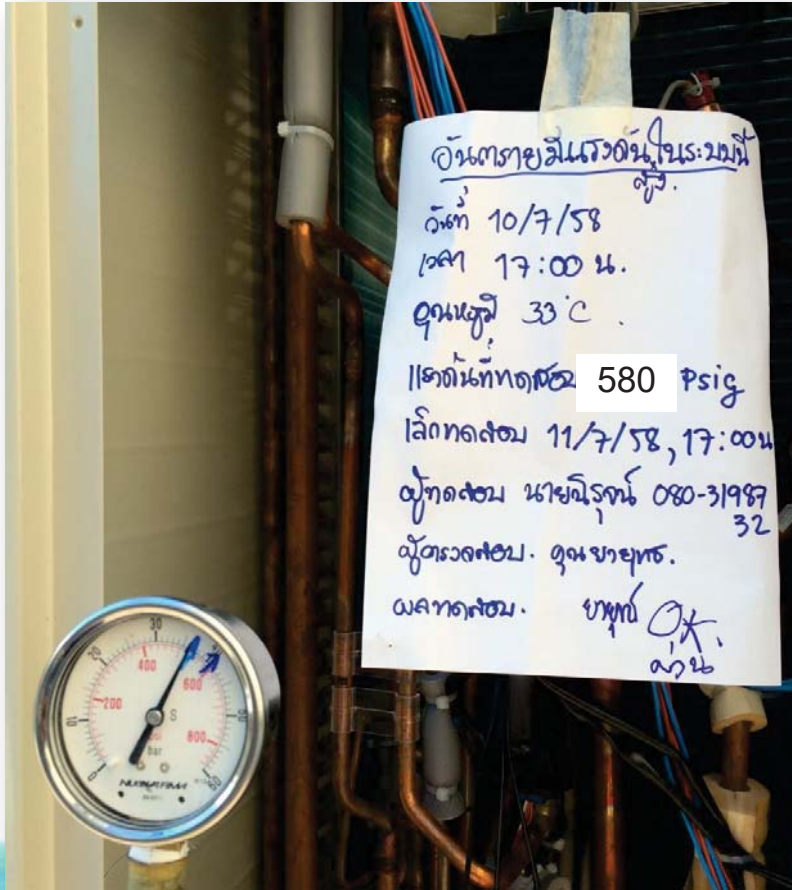 อันตรายมีแรงดันสูงในระบบนี้
วันที่ 10/7/58
เวลา 17:00 น.
อุณหภูมิ 33°C.
แรงดันที่ทดสอบ 580 Psig
เลิกทดสอบ 11/7/58, 17:00น
ผู้ทดสอบ นายนิรุจน์ 080-31987
32
ผู้ตรวจสอบ.
ผลทดสอบ. OK.
ผ่าน
0 10 20 30 50 60
200 400 600 800
psi
bar
S